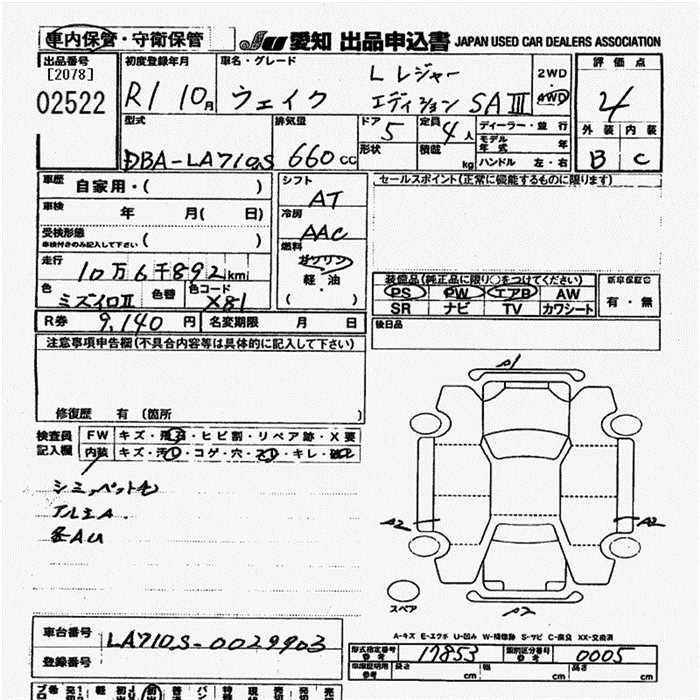 車内保管・守衛保管 JU 愛知 出品申込書 JAPAN USED CAR DEALERS ASSOCIATION
出品番号 [2078] 02522
初度登録年月 R1 10月
車名・グレード ウェイク L レジャーエディション SAIII
2WD・4WD
評価点 4
外装 内装
B C
型式 DBA-LA710S
排気量 660cc
ドア 5 形状
定員 4人 積載 kg
ディーラー・並行
モデル年式 年
ハンドル 左・右
車歴 自家用・( )
車検 年 月( 日)
受検形態 車検付きのみ記入して下さい ( )
走行 10万6千892km
色 ミズイロII 色替 色コード X81
シフト AT
冷房 AAC
燃料 ガソリン 軽・油 ( )
セールスポイント(正常に機能するものに限ります)
装備品(純正品に限り○をつけてください)
PS PW エアB AW
SR ナビ TV カワシート
新車保証書 有・無
R券 9,140円 名変期限 月 日
後日品
注意事項申告欄(不具合内容等は具体的に記入して下さい)
修復歴 有(箇所 )
検査員記入欄
FW キズ・飛石・ヒビ割・リペア跡・X要
内装 キズ・汚れ・コゲ・穴・スレ・キレ・破れ
シミ、ペットも
アルミA.
各AU
A1
A2 A2
スペア
A2
A-キズ E-エクボ U-凹み W-補修跡 S-サビ C-腐食 XX-交換済
車台番号 LA710S-0029903
登録番号
型式指定番号 参考 17853 類別区分番号 参考 0005
車庫証明用 参考 長さ cm 幅 cm 高さ cm